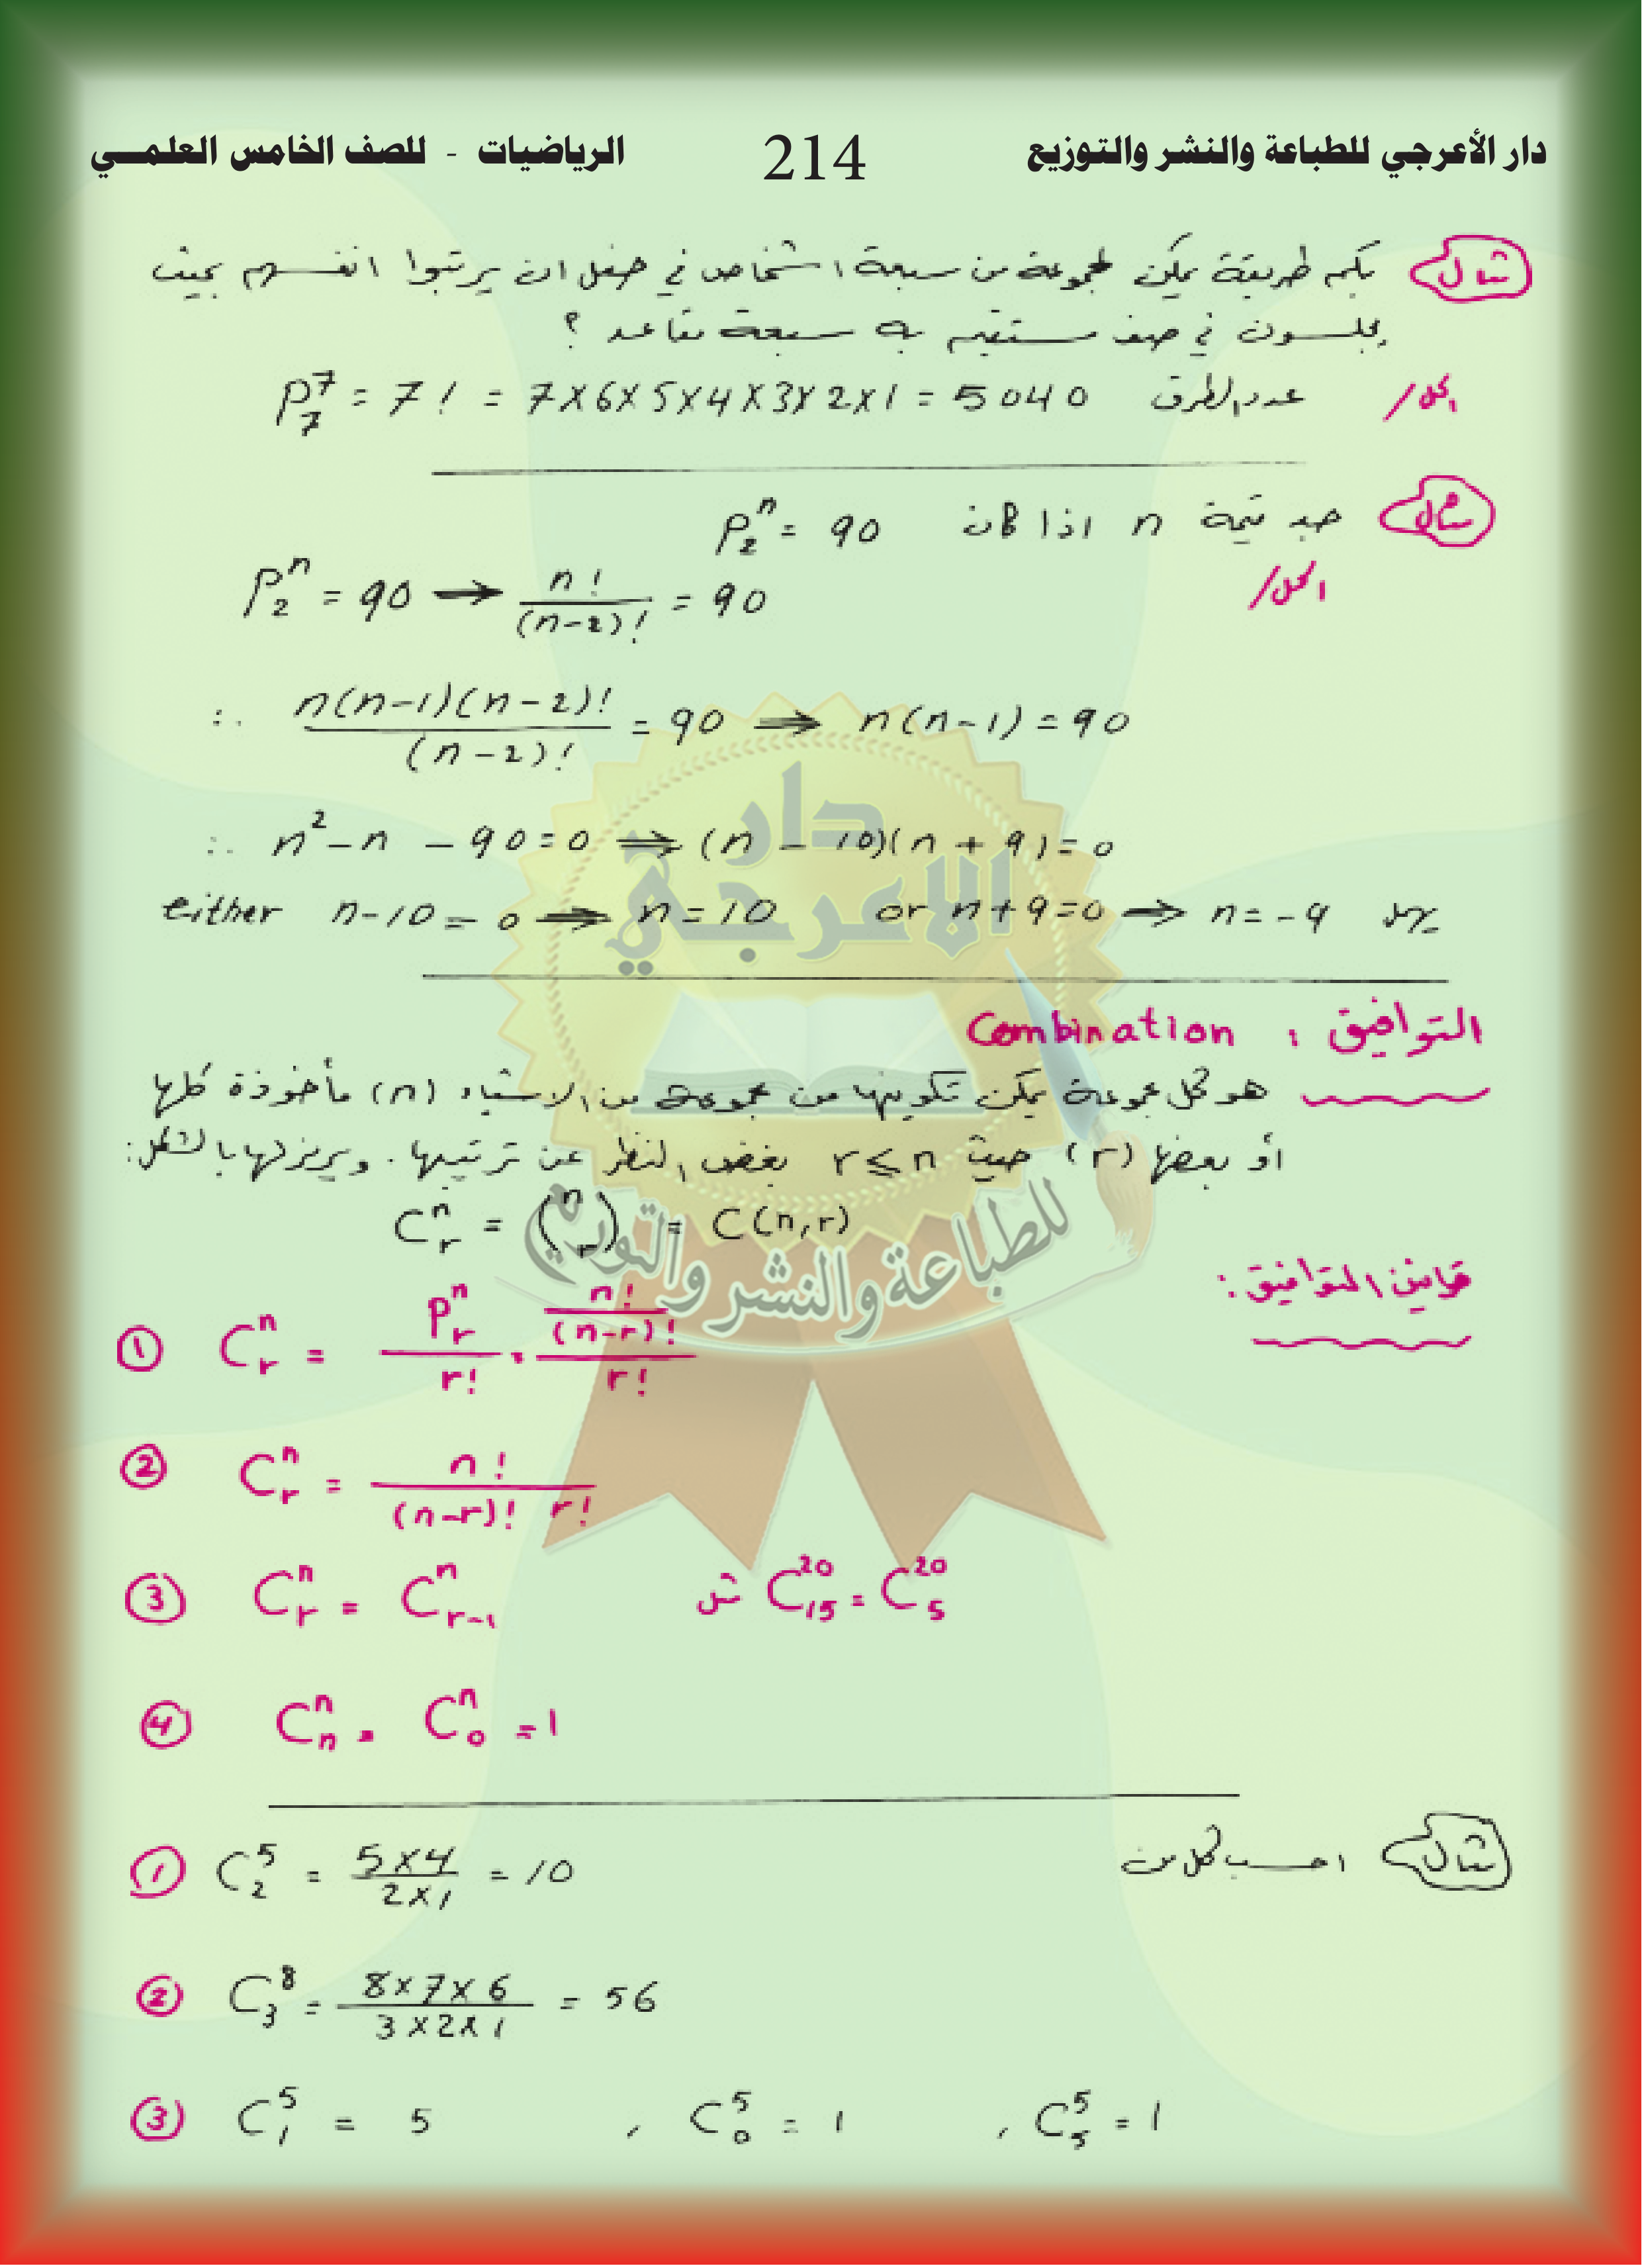 دار الأعرجي للطباعة والنشر والتوزيع 214 الرياضيات - للصف الخامس العلمي
مثال بكم طريقة يمكن لمجموعة من سبعة اشخاص في حفل ان يرتبوا انفسهم بحيث
يجلسون في صف مستقيم به سبعة مقاعد ؟
الحل/ عدد الطرق P⁷₇ = 7! = 7×6×5×4×3×2×1 = 5040
مثال جد قيمة n اذا كان Pⁿ₂ = 90
الحل/
Pⁿ₂ = 90 → n!/(n-2)! = 90
∴ n(n-1)(n-2)!/(n-2)! = 90 ⇒ n(n-1) = 90
∴ n² - n - 90 = 0 ⇒ (n - 10)(n + 9) = 0
either n-10 = 0 ⇒ n = 10 or n+9=0 ⇒ n = -9 يهمل
التوافيق : Combination
هو كل مجموعة يمكن تكوينها من مجموعة من الاشياء (n) مأخوذة كلها
أو بعضها (r) حيث r ≤ n بغض النظر عن ترتيبها . ويرمز لها بالشكل :
Cⁿᵣ = (ⁿᵣ) = C(n,r)
قوانين التوافيق :
① Cⁿᵣ = Pⁿᵣ/r! = (n!/(n-r)!)/r!
② Cⁿᵣ = n!/((n-r)! r!)
③ Cⁿᵣ = Cⁿᵣ₋₁ مثل C²⁰₁₅ = C²⁰₅
④ Cⁿₙ = Cⁿ₀ = 1
مثال احسب كل من
① C⁵₂ = (5×4)/(2×1) = 10
② C⁸₃ = (8×7×6)/(3×2×1) = 56
③ C⁵₁ = 5 , C⁵₀ = 1 , C⁵₅ = 1
دار
الاعرجي
للطباعة والنشر والتوزيع